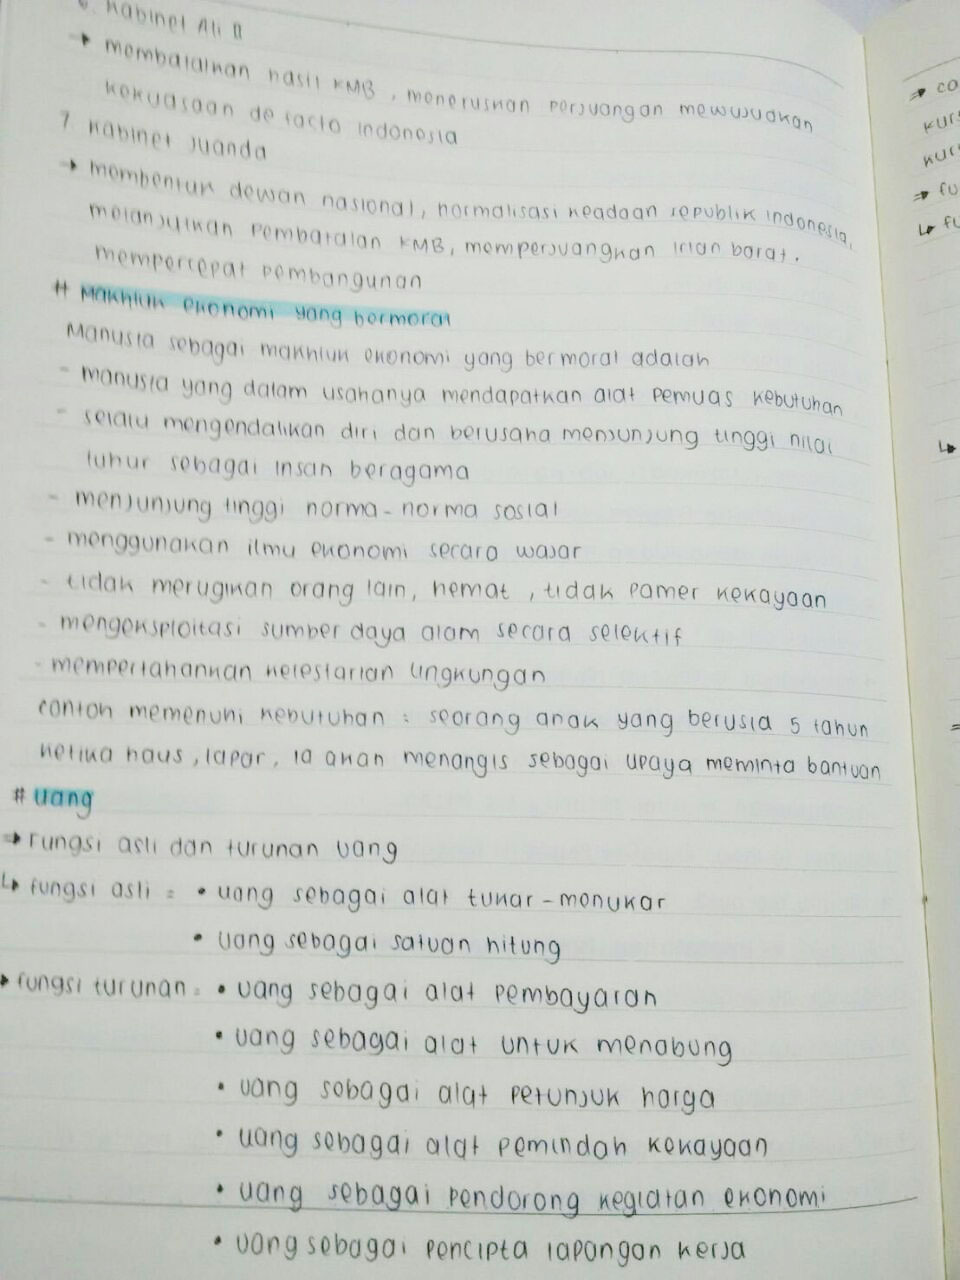 6. Kabinet Ali II
→ membatalkan hasil KMB, meneruskan perjuangan mewujudkan
kekuasaan de facto Indonesia
7. Kabinet Juanda
→ membentuk dewan nasional, normalisasi keadaan republik Indonesia,
melanjutkan pembatalan KMB, memperjuangkan irian barat.
mempercepat pembangunan
# Makhluk ekonomi yang bermoral
Manusia sebagai makhluk ekonomi yang bermoral adalah
- manusia yang dalam usahanya mendapatkan alat pemuas kebutuhan
- selalu mengendalikan diri dan berusaha menjunjung tinggi nilai
luhur sebagai insan beragama
- menjunjung tinggi norma-norma sosial
- menggunakan ilmu ekonomi secara wajar
- tidak merugikan orang lain, hemat, tidak pamer kekayaan
- mengeksploitasi sumber daya alam secara selektif
- mempertahankan kelestarian lingkungan
contoh memenuhi kebutuhan : seorang anak yang berusia 5 tahun
ketika haus, lapar, ia akan menangis sebagai upaya meminta bantuan
# Uang
→ Fungsi asli dan turunan uang
↳ fungsi asli = • uang sebagai alat tukar-menukar
• uang sebagai satuan hitung
→ fungsi turunan = • uang sebagai alat pembayaran
• uang sebagai alat untuk menabung
• uang sebagai alat petunjuk harga
• uang sebagai alat pemindah kekayaan
• uang sebagai pendorong kegiatan ekonomi
• uang sebagai pencipta lapangan kerja